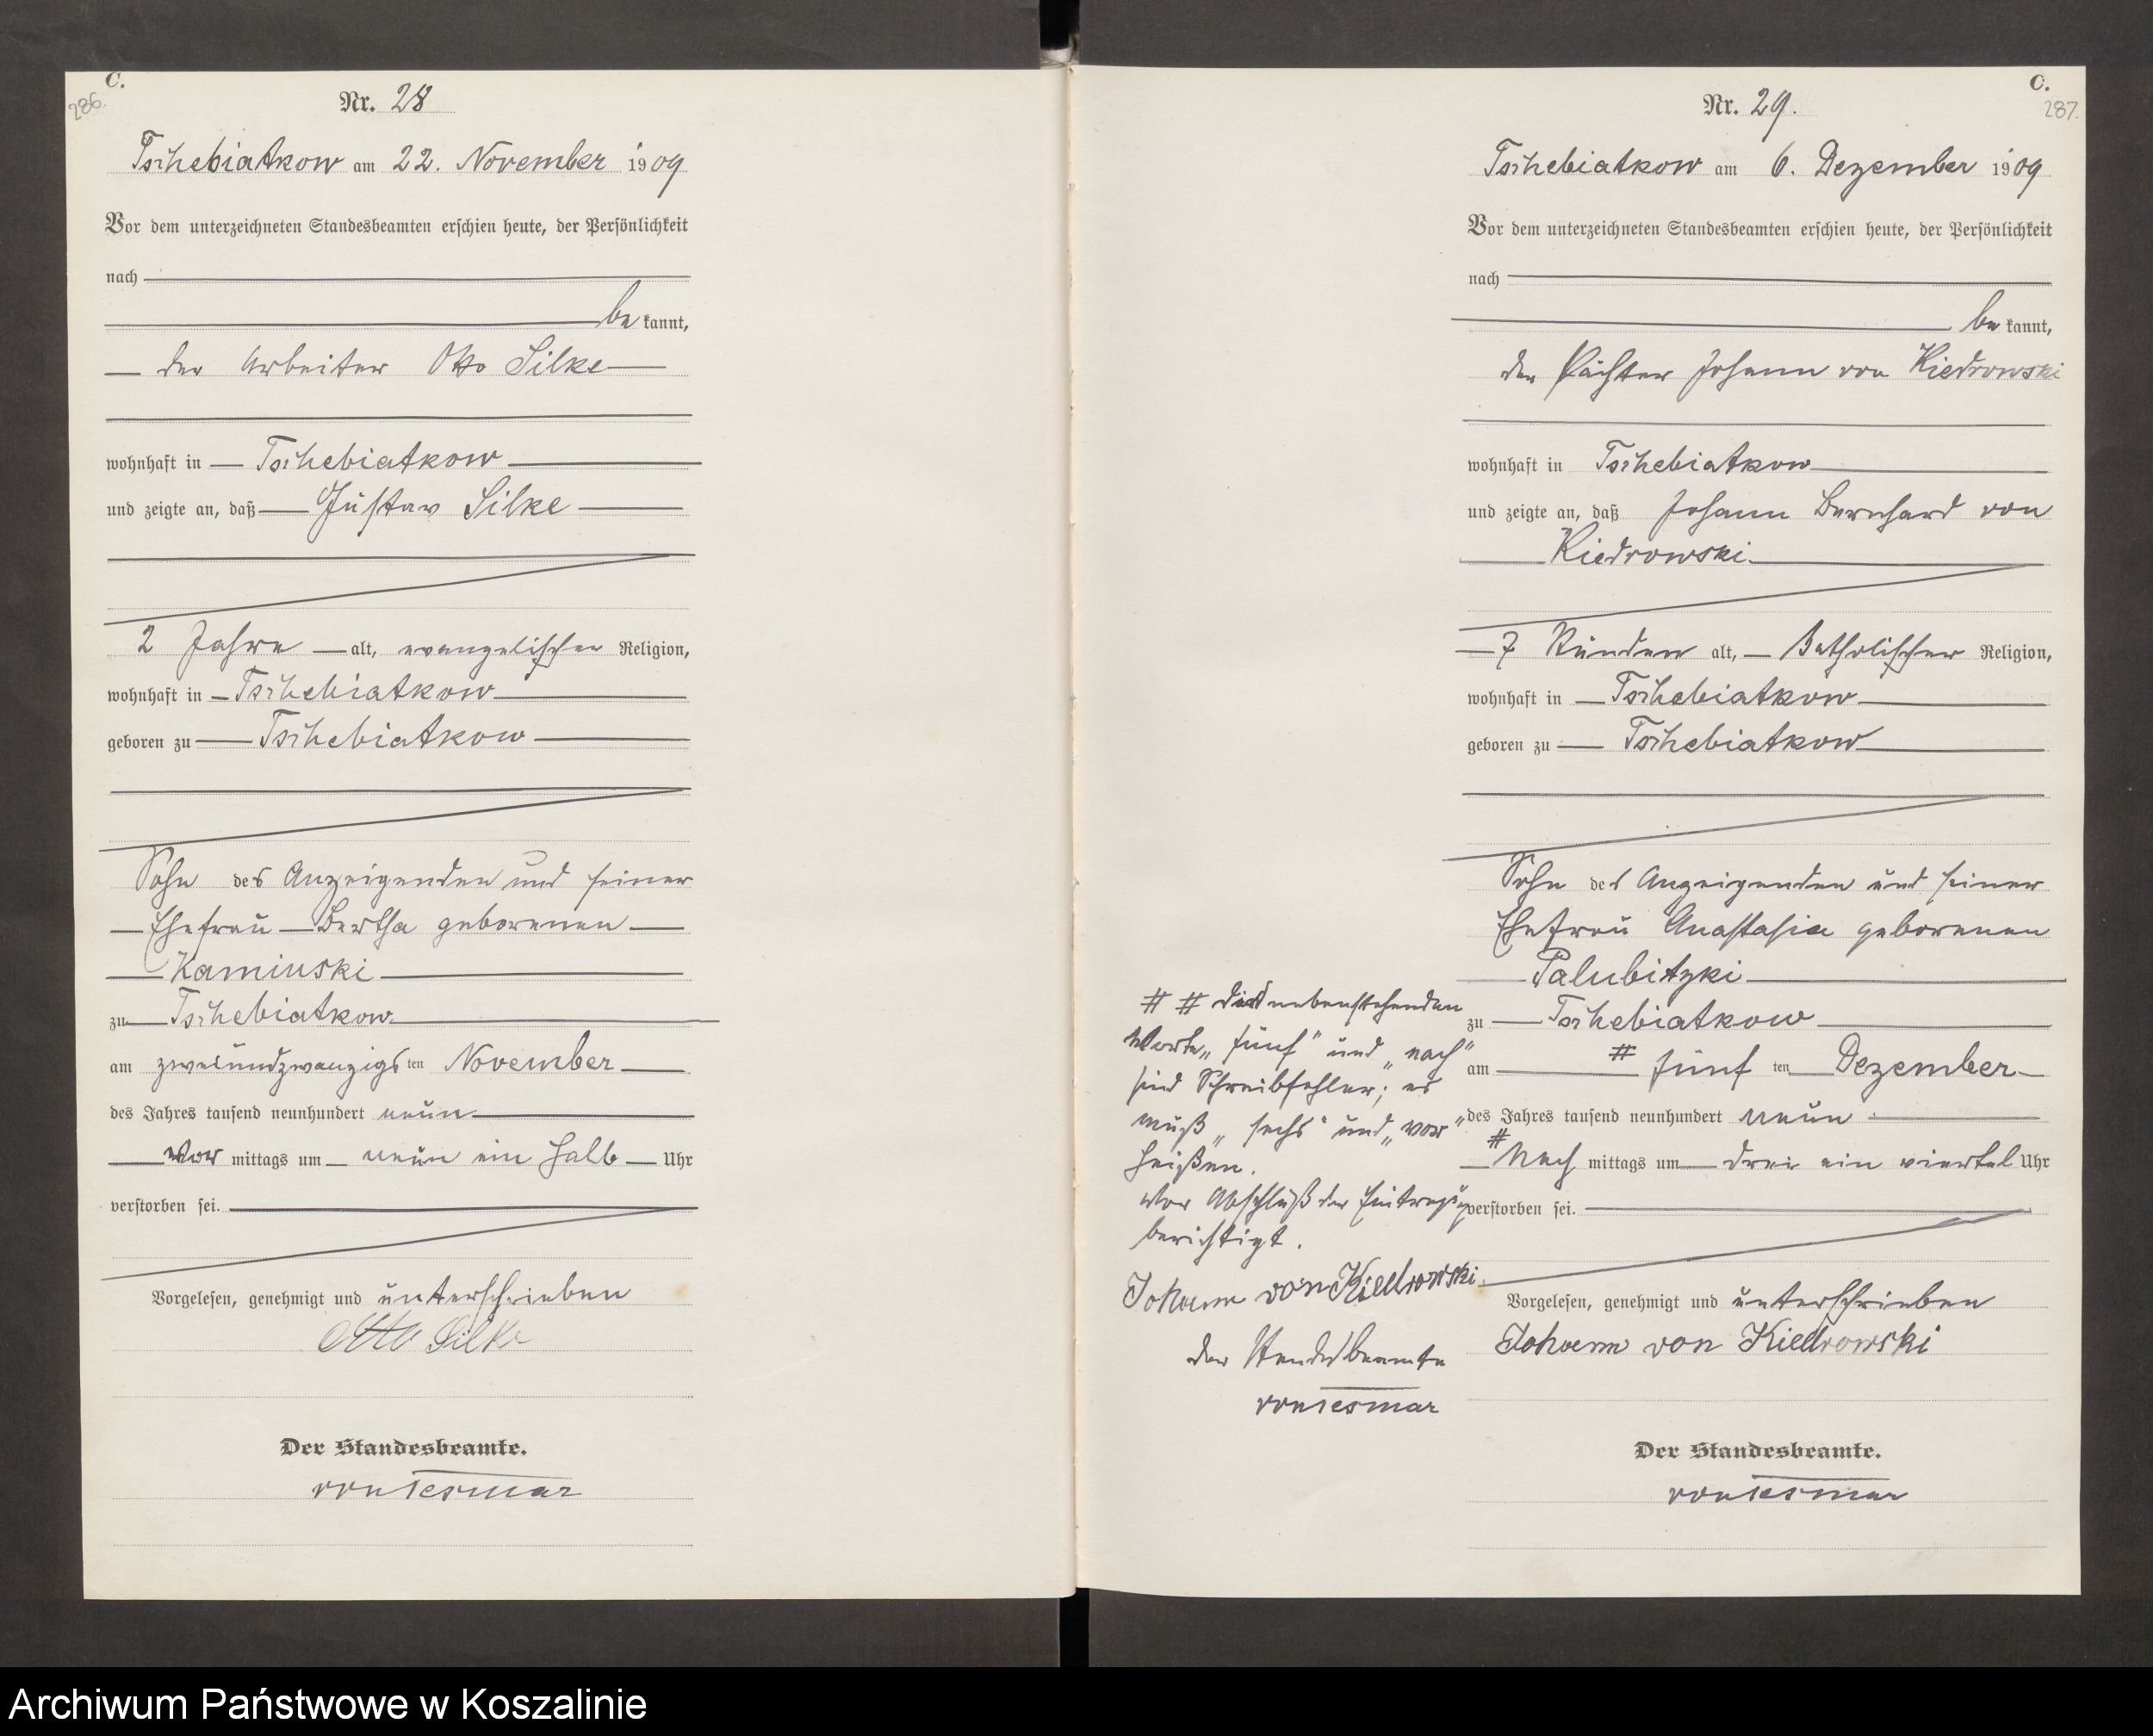 C.
286.
Nr. 28
Tschebiatkow am 22. November 1909
Vor dem unterzeichneten Standesbeamten erschien heute, der Persönlichkeit
nach
bekannt,
der Arbeiter Otto Silke
wohnhaft in Tschebiatkow
und zeigte an, daß Gustav Silke
2 Jahre alt, evangelischer Religion,
wohnhaft in Tschebiatkow
geboren zu Tschebiatkow
Sohn des Anzeigenden und seiner
Ehefrau Bertha geborenen
Kaminski
zu Tschebiatkow
am zweiundzwanzigsten November
des Jahres tausend neunhundert neun
Vormittags um neun ein halb Uhr
verstorben sei.
Vorgelesen, genehmigt und unterschrieben
Otto Silke
Der Standesbeamte.
von Tesmar
C.
287.
Nr. 29.
Tschebiatkow am 6. Dezember 1909
Vor dem unterzeichneten Standesbeamten erschien heute, der Persönlichkeit
nach
bekannt,
der Pächter Johann von Kiedrowski
wohnhaft in Tschebiatkow
und zeigte an, daß Johann Bernhard von
Kiedrowski
7 Stunden alt, Katholischer Religion,
wohnhaft in Tschebiatkow
geboren zu Tschebiatkow
Sohn des Anzeigenden und seiner
Ehefrau Anastasia geborenen
Palubitzki
zu Tschebiatkow
am # fünften Dezember
des Jahres tausend neunhundert neun
# Nachmittags um drei ein viertel Uhr
verstorben sei.
Vorgelesen, genehmigt und unterschrieben
Johann von Kiedrowski
Der Standesbeamte.
von Tesmar
# # Die nebenstehenden
Worte „fünf" und „nach"
sind Schreibfehler; es
muß „sechs" und „vor"
heißen.
Vor Abschluß der Eintragung
berichtigt.
Johann von Kiedrowski
Der Standesbeamte
von Tesmar
Archiwum Państwowe w Koszalinie